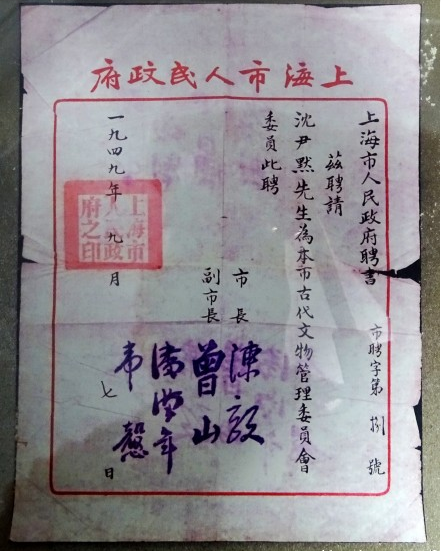 上海市人民政府
上海市人民政府聘書
市聘字第捌號
茲聘請
沈尹默先生為本市古代文物管理委員會
委員此聘
市長 陳毅
副市長 曾山
潘漢年
韋慤
一九四九年九月七日
上海市
人民政
府之印